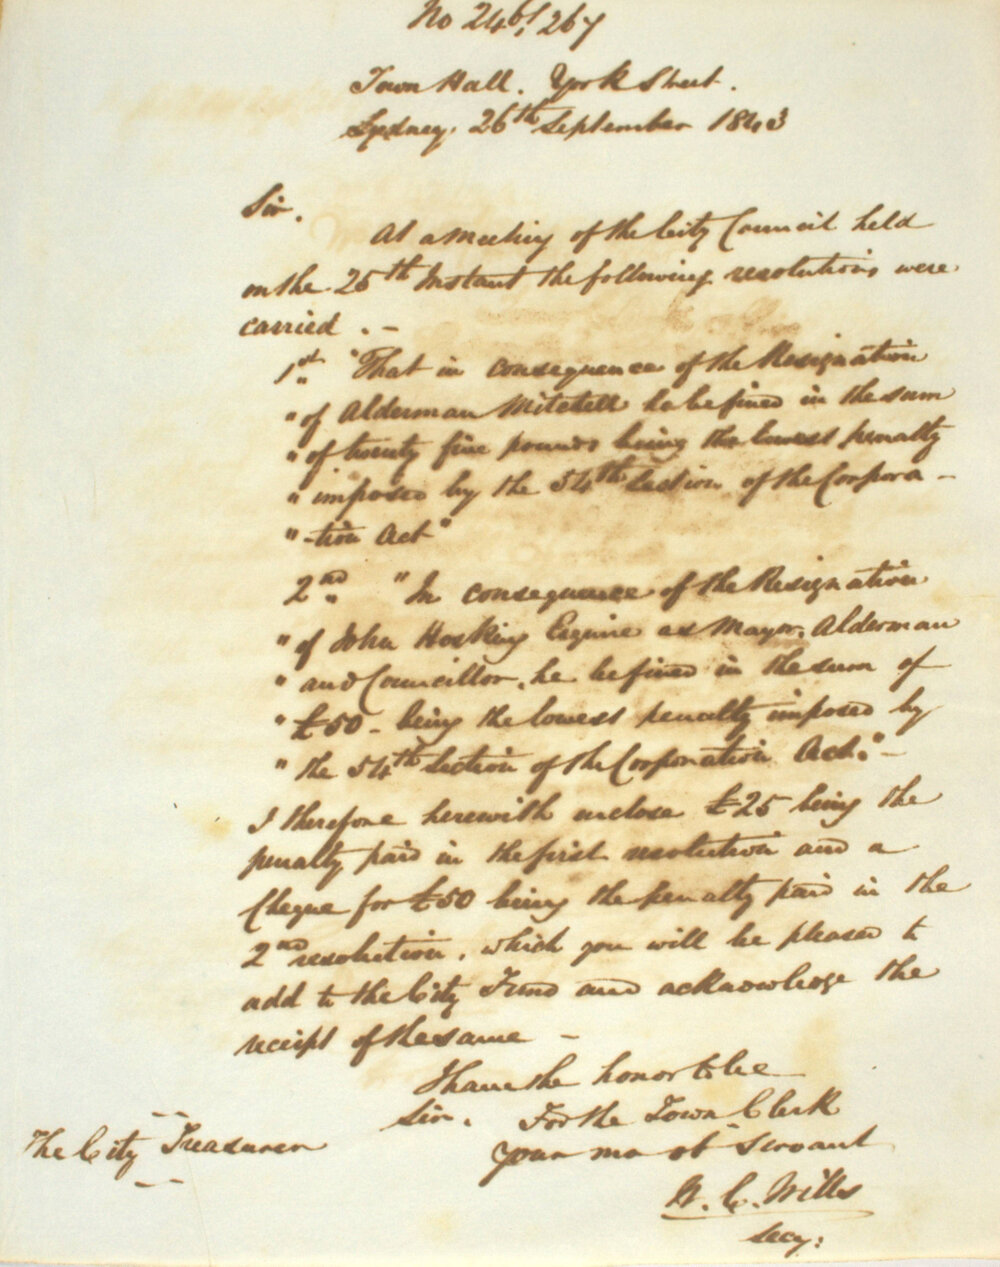 No 246/267
Town Hall. York Street.
Sydney. 26th September 1843
Sir.
At a meeting of the City Council held
on the 25th Instant the following resolutions were
carried . –
1st " "That in consequence of the Resignation
" of Alderman Mitchell he be fined in the sum
" of twenty five pounds being the lowest penalty
" imposed by the 54th Section of the Corpora -
" -tion Act"
2nd " "In consequence of the Resignation
" of John Hosking Esquire as Mayor, Alderman
" and Councillor, he be fined in the sum of
" £50 - being the lowest penalty imposed by
" the 54th Section of the Corporation Act." –
I therefore herewith enclose £25 being the
penalty paid in the first resolution and a
Cheque for £50 being the penalty paid in the
2nd resolution, which you will be pleased to
add to the City Fund and acknowledge the
receipt of the same –
I have the honor to be
Sir. For the Town Clerk
Your mo ob Servant
W. C. Wills
Secy:
The City Treasurer